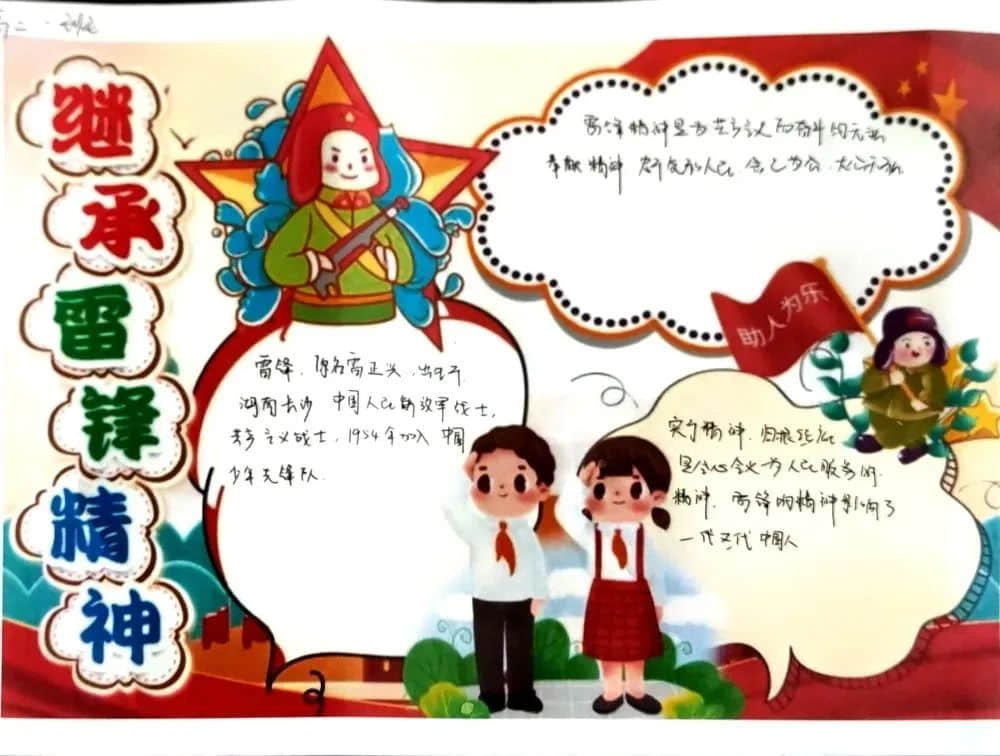 继
承
雷
锋
精
神
雷锋精神是为共产主义而奋斗的无私
奉献精神 舍己为公、大公无私
助人为乐
雷锋, 原名雷正兴, 出生于
湖南长沙 中国人民解放军战士,
共产主义战士, 1954年加入中国
少年先锋队.
精神. 归根结底
是全心全意为人民服务的
精神. 雷锋的精神影响了
一代又一代中国人